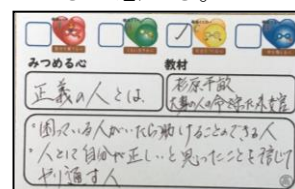 みつめる心
教材
正義の人とは
杉原千畝
大勢の人の命を救った外交官
・困っている人がいたら助けることができる人
・人として自分が正しいと思ったことを信じて
やり通す人